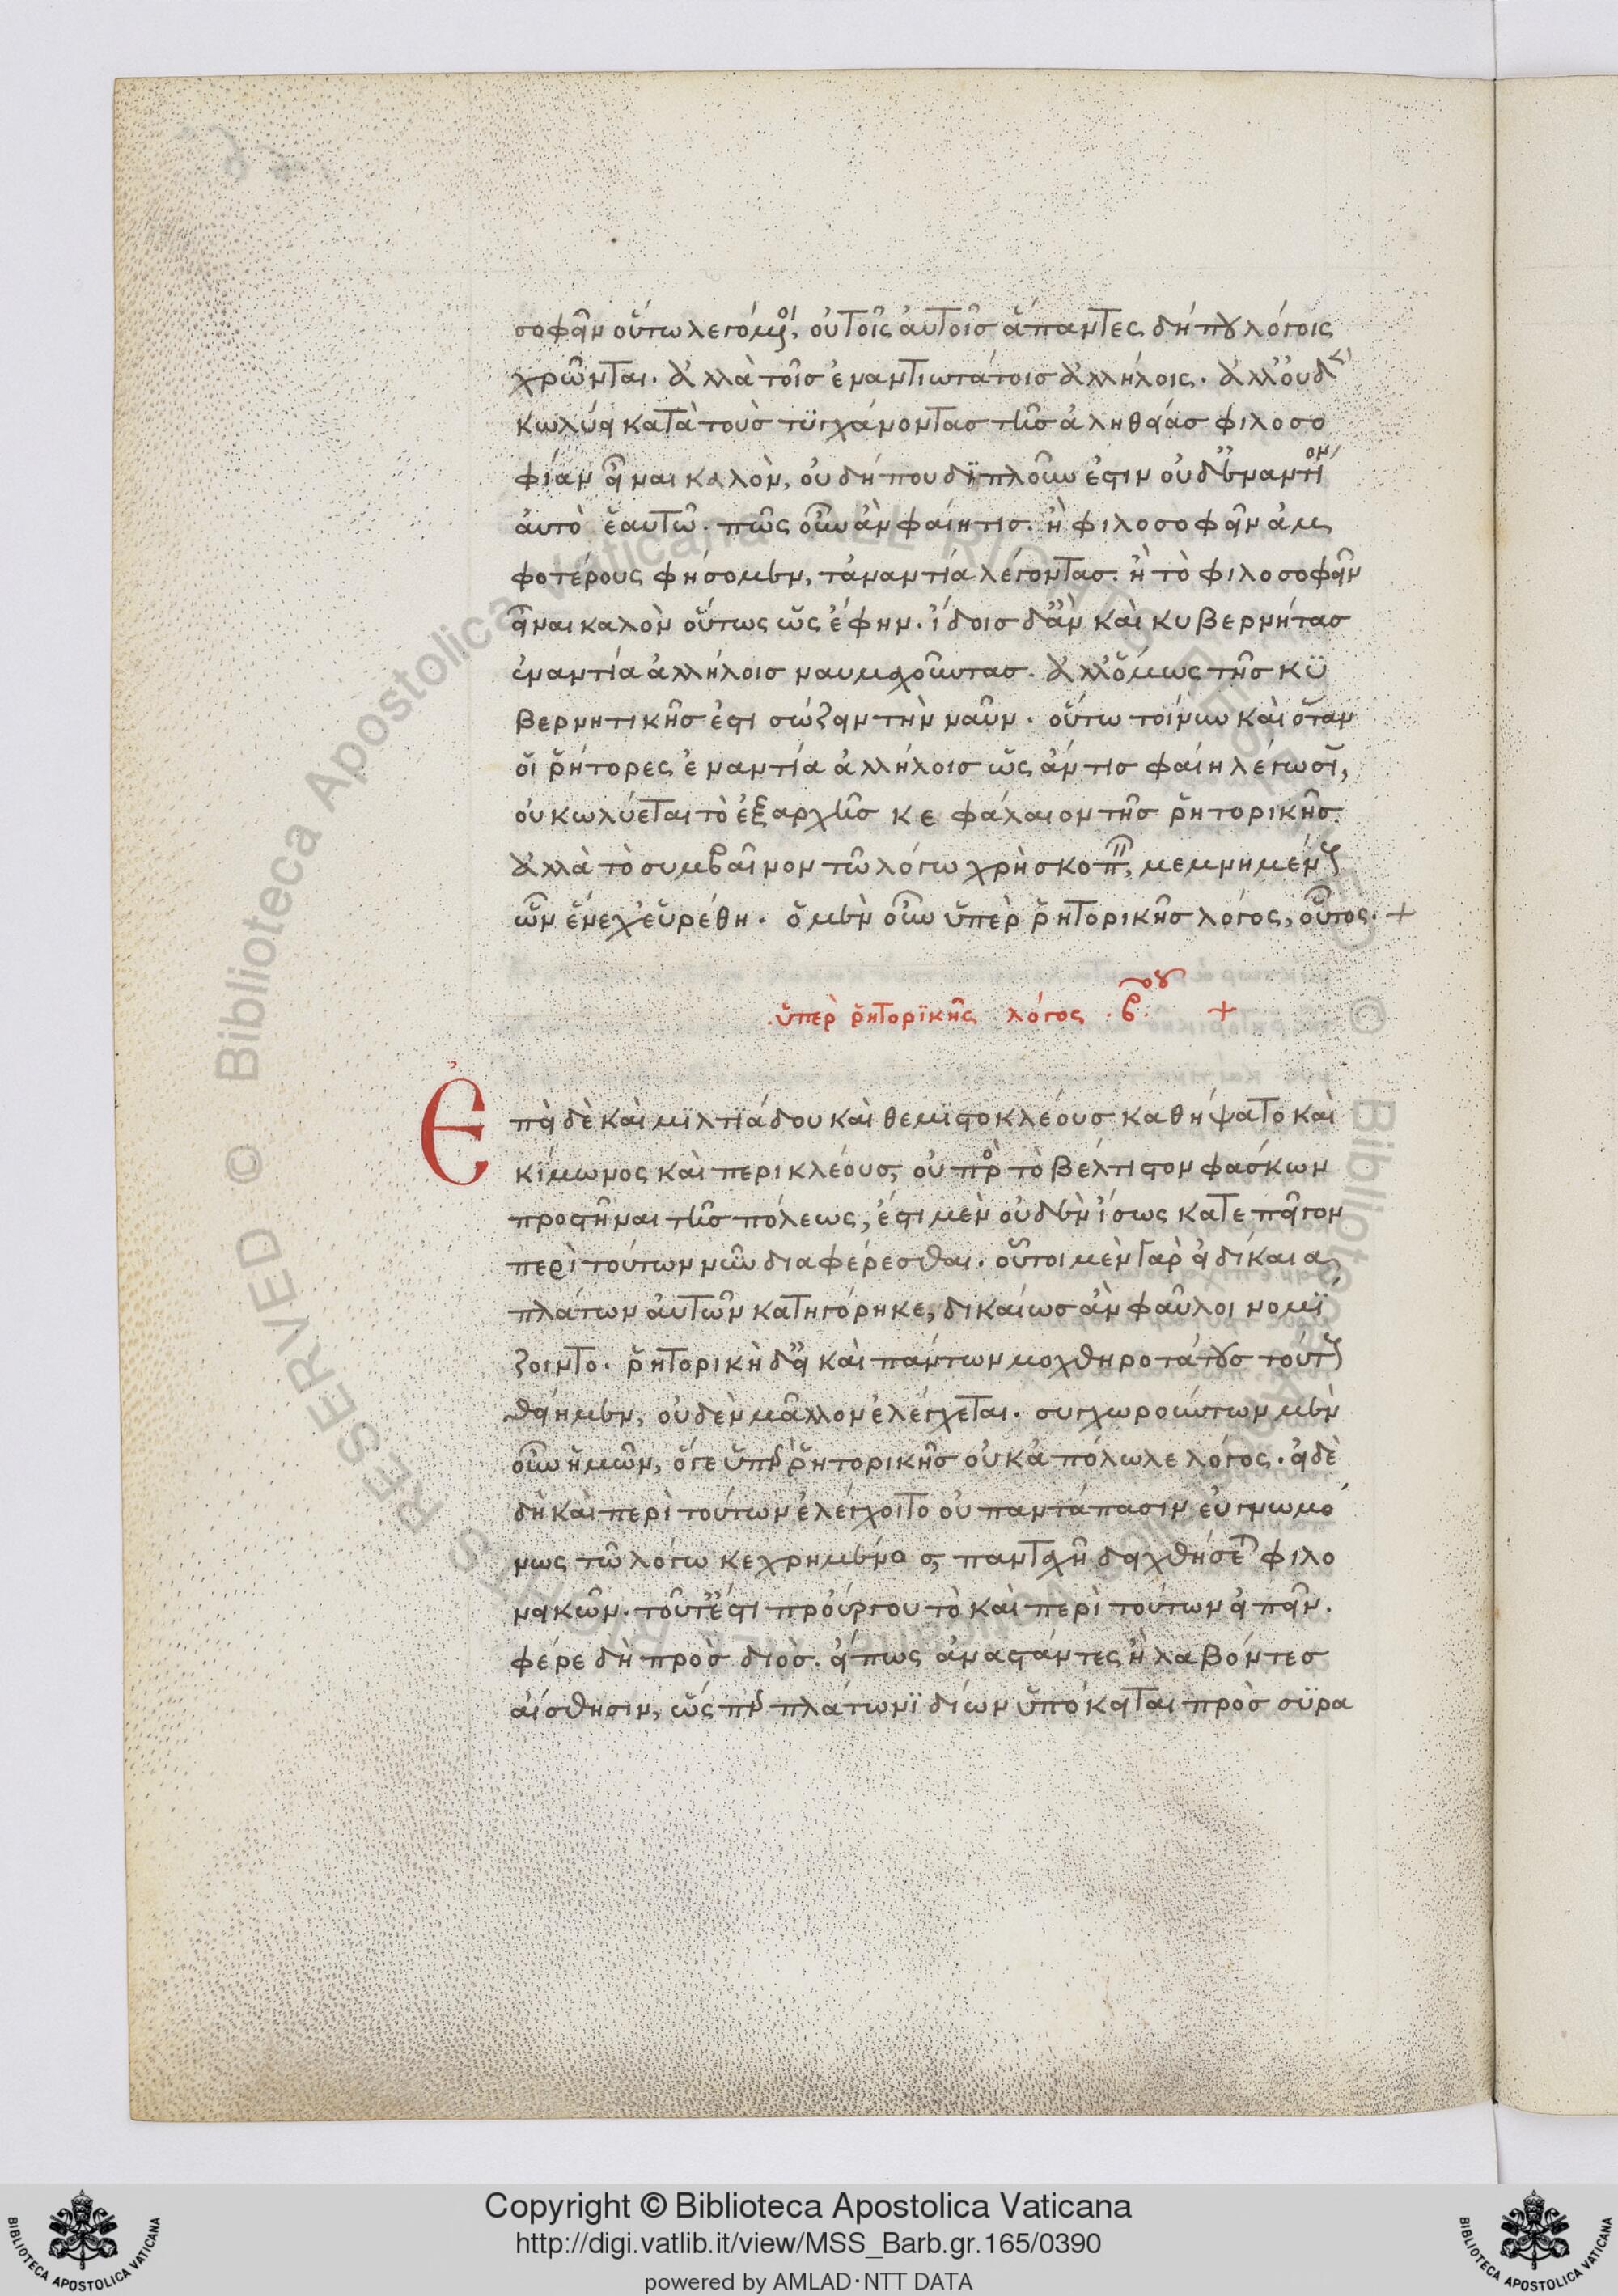 σοφεῖν οὕτω λεγόμενοι, οὐ τοῖς αὐτοῖς ἅπαντες δήπου λόγοις
χρῶνται. ἀλλὰ τοῖς ἐναντιωτάτοις ἀλλήλοις. ἀλλ' οὐδὲν
κωλύει κατὰ τοὺς τυγχάνοντας τῆς ἀληθείας φιλοσο
φίαν εἶναι καλὸν, οὐ δήπου διπλοῦν ἐστιν οὐδ' ἐναντίον
αὐτὸ ἑαυτῶ. πῶς οὖν ἂν φαίη τις. ἢ φιλοσοφεῖν ἀμ
φοτέρους φήσομεν, τἀναντία λέγοντας. ἢ τὸ φιλοσοφεῖν
εἶναι καλὸν οὕτως ὥς ἔφην. ἴδοις δ' ἂν καὶ κυβερνήτας
ἐναντία ἀλλήλοις ναυμαχοῦντας. ἀλλ' ὅμως τῆς κϋ
βερνητικῆς ἐστι σώζειν τὴν ναῦν. οὕτω τοίνυν καὶ ὅταν
οἱ ῥήτορες ἐναντία ἀλλήλοις ὥς ἄν τις φαίη λέγωσι,
οὐ κωλύεται τὸ ἐξαρχῆς κεφάλαιον τῆς ῥητορικῆς.
ἀλλὰ τὸ συμβαῖνον τῶ λόγω χρὴ σκοπεῖν, μεμνημένους
ὧν ἕνεχ' εὑρέθη. ὁ μὲν οὖν ὑπὲρ ῥητορικῆς λόγος, οὗτος. +
ὑπὲρ ῥητορϊκῆς λόγος β ου +
Ἐπεὶ δὲ καὶ μιλτιάδου καὶ θεμιστοκλέους καθήψατο καὶ
κίμωνος καὶ περικλέους, οὐ πρὸς τὸ βέλτιστον φάσκων
προστῆναι τῆς πόλεως, ἔστι μὲν οὐδὲν ἴσως κατεπεῖγον
περὶ τούτων νῦν διαφέρεσθαι. οὗτοι μὲν γὰρ εἰ δίκαια
πλάτων αὐτῶν κατηγόρηκε, δικαίως ἂν φαῦλοι νομί
ζοιντο. ῥητορικὴ δ' εἰ καὶ πάντων μοχθηροτάτους τούτους
θείημεν, οὐδὲν μᾶλλον ἐλέγχεται. συγχωρούντων μὲν
οὖν ἡμῶν, ὅγε ὑπὲρ ῥητορικῆς οὐκ ἀπόλωλε λόγος. εἰ δὲ
δὴ καὶ περὶ τούτων ἐλέγχοιτο οὐ παντάπασιν εὐγνωμό
νως τῶ λόγω κεχρημένος, πανταχῆ δειχθήσεται φιλο
νεικῶν. τοῦτ' ἔστι προὔργου τὸ καὶ περὶ τούτων εἰπεῖν.
φέρε δὴ πρὸς διὸς. εἴπως ἀναστάντες ἢ λαβόντες
αἴσθησιν, ὥς περ πλάτωνϊ δίων ὑπόκειται πρὸς σϋρα
Copyright © Biblioteca Apostolica Vaticana
http://digi.vatlib.it/view/MSS_Barb.gr.165/0390
powered by AMLAD·NTT DATA